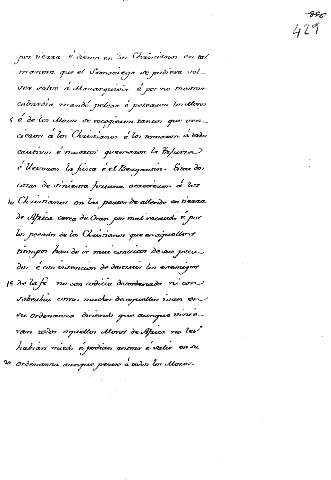 429
por tierra é dieron en los Christianos en tal
manera que el Samaniego se pudiera vol-
ver salvo á Mazarquivir é por no mostrar
cobardia mandó pelear é pelearon los Moros
5 é de los Moros se recogieron tantos que ven-
cieron á los Christianos é los tomaron á todos
cautivos é muertos quemaron la
é llevaron la fusta é el Bergantin. Estas dos
cosas de siniestra fortuna acaecieron á los
10 Christianos en las partes de allende en tierra
de Africa cerca de Oran por mal recaudo é por
los pecados de los Christianos que en aquellos
tiempos han de ir mui contritos de sus peca-
dos é con intencion de destruir los enemigos
15 de la fe no con codicia desordenada ni con
soberbia como muchos de aquellos ivan en
su ordenanza diciendo que aunque vinie-
ran todos aquellos Moros de Africa no les
habian miedo é podian entrar é salir en su
20 ordenanza aunque pesase á todos los Moros.